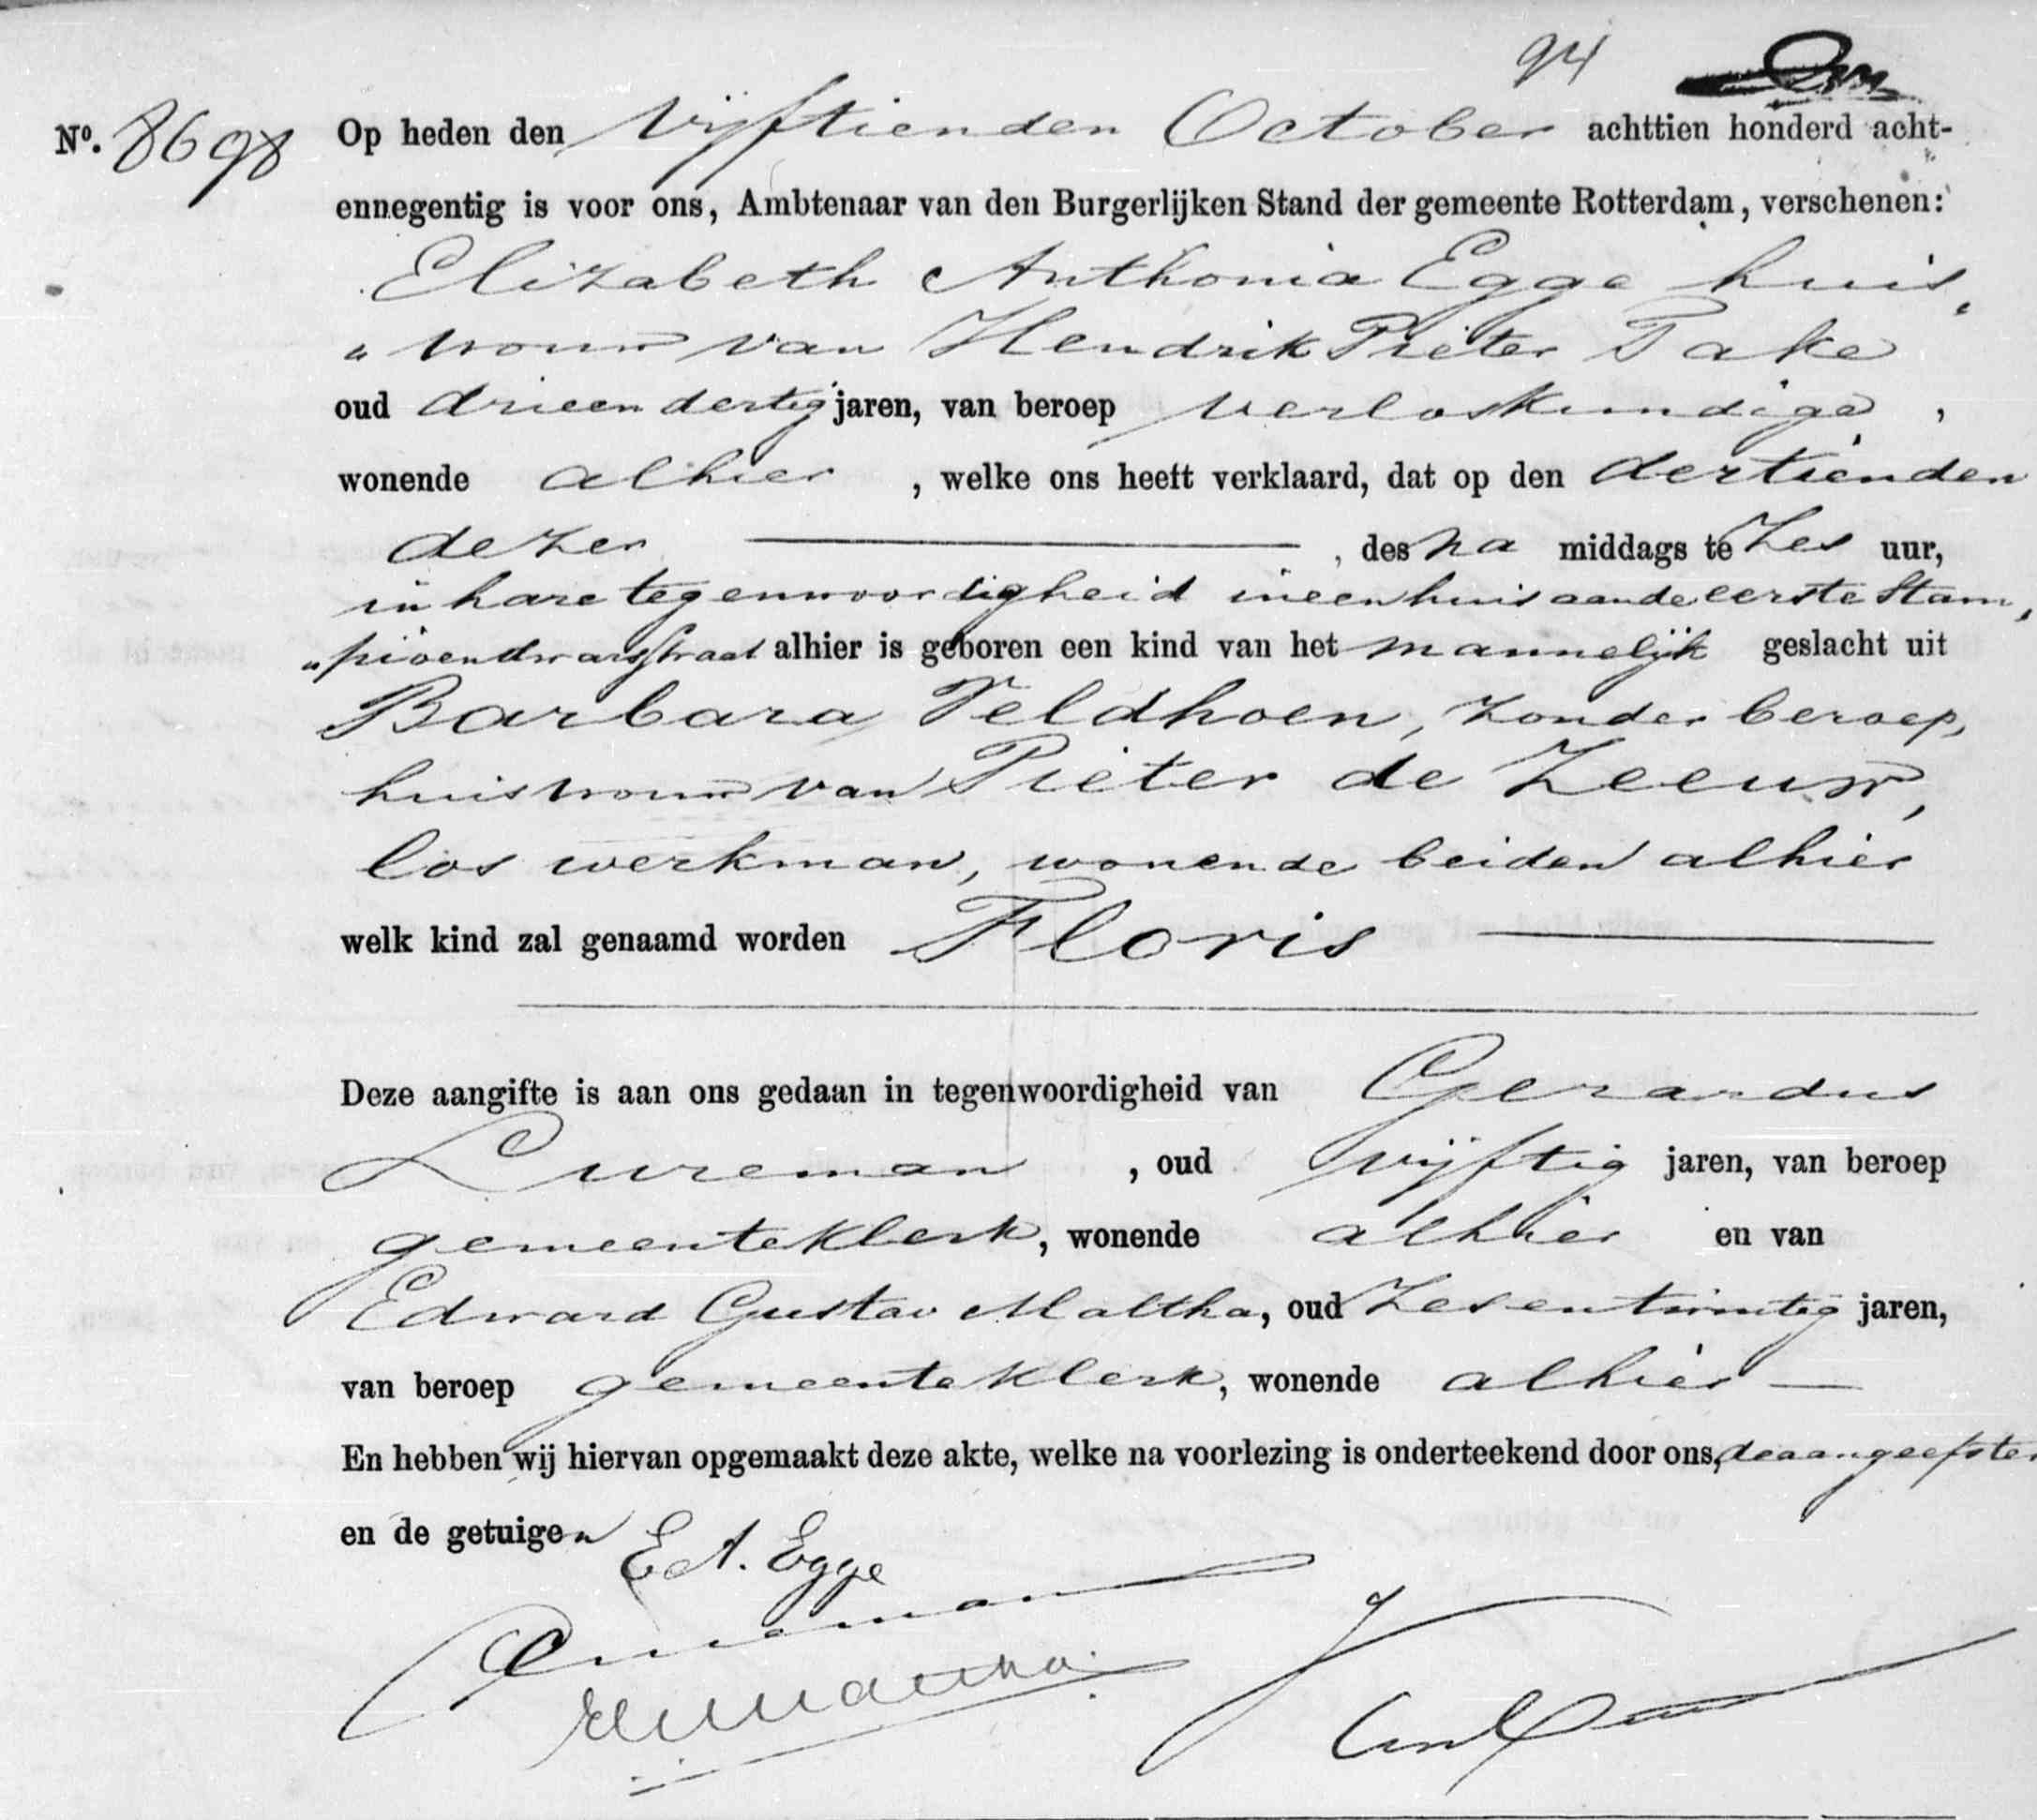 94
Nº. 8698 Op heden den vijftienden October achttien honderd acht-
ennegentig is voor ons, Ambtenaar van den Burgerlijken Stand der gemeente Rotterdam, verschenen:
Elizabeth Anthonia Egge huis„
„vrouw van Hendrik Pieter Take
oud drieendertig jaren, van beroep verloskundige,
wonende alhier, welke ons heeft verklaard, dat op den dertienden
dezer , des na middags te zes uur,
in hare tegenwoordigheid in een huis aan de eerste Stam„
„pioendwarsstraat alhier is geboren een kind van het mannelijk geslacht uit
Barbara Veldhoen, zonder beroep,
huisvrouw van Pieter de Zeeuw,
los werkman, wonende beiden alhier
welk kind zal genaamd worden Floris
Deze aangifte is aan ons gedaan in tegenwoordigheid van Gerardus
Lureman, oud vijftig jaren, van beroep
gemeenteklerk, wonende alhier en van
Edward Gustav Maltha, oud zesentwintig jaren,
van beroep gemeenteklerk, wonende alhier
En hebben wij hiervan opgemaakt deze akte, welke na voorlezing is onderteekend door ons, de aangeefster
en de getuigen
E. A. Egge
Lureman
EGMaltha.